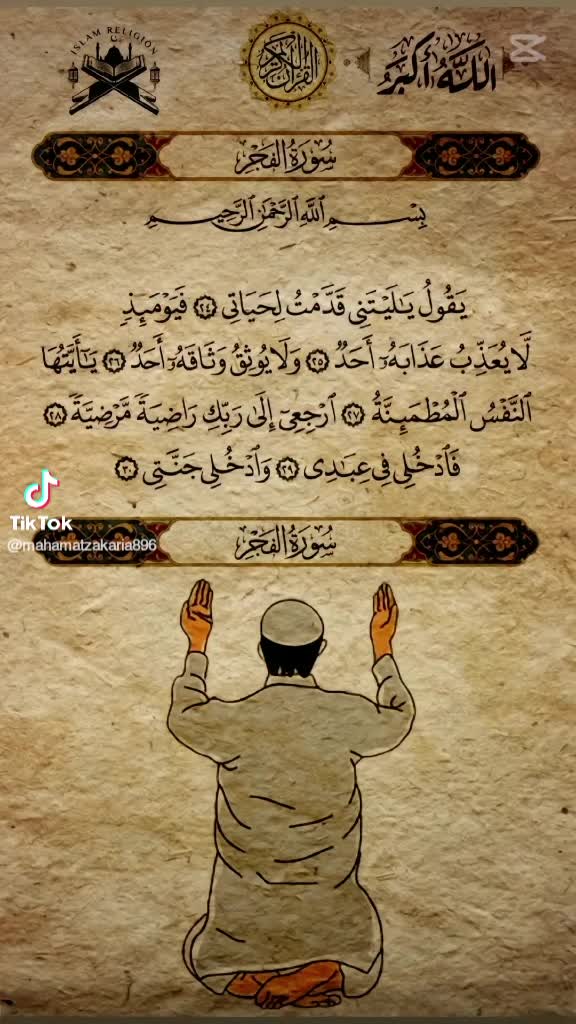 ISLAM RELIGION
القرآن الكريم
الله أكبر
سُورَةُ الفَجْرِ
بِسْمِ ٱللَّهِ ٱلرَّحْمَٰنِ ٱلرَّحِيمِ
يَقُولُ يَٰلَيْتَنِى قَدَّمْتُ لِحَيَاتِى ٢٤ فَيَوْمَئِذٍ
لَّا يُعَذِّبُ عَذَابَهُۥٓ أَحَدٌ ٢٥ وَلَا يُوثِقُ وَثَاقَهُۥٓ أَحَدٌ ٢٦ يَٰٓأَيَّتُهَا
ٱلنَّفْسُ ٱلْمُطْمَئِنَّةُ ٢٧ ٱرْجِعِىٓ إِلَىٰ رَبِّكِ رَاضِيَةً مَّرْضِيَّةً ٢٨
فَٱدْخُلِى فِى عِبَٰدِى ٢٩ وَٱدْخُلِى جَنَّتِى ٣٠
TikTok
@mahamatzakaria896
سُورَةُ الفَجْرِ